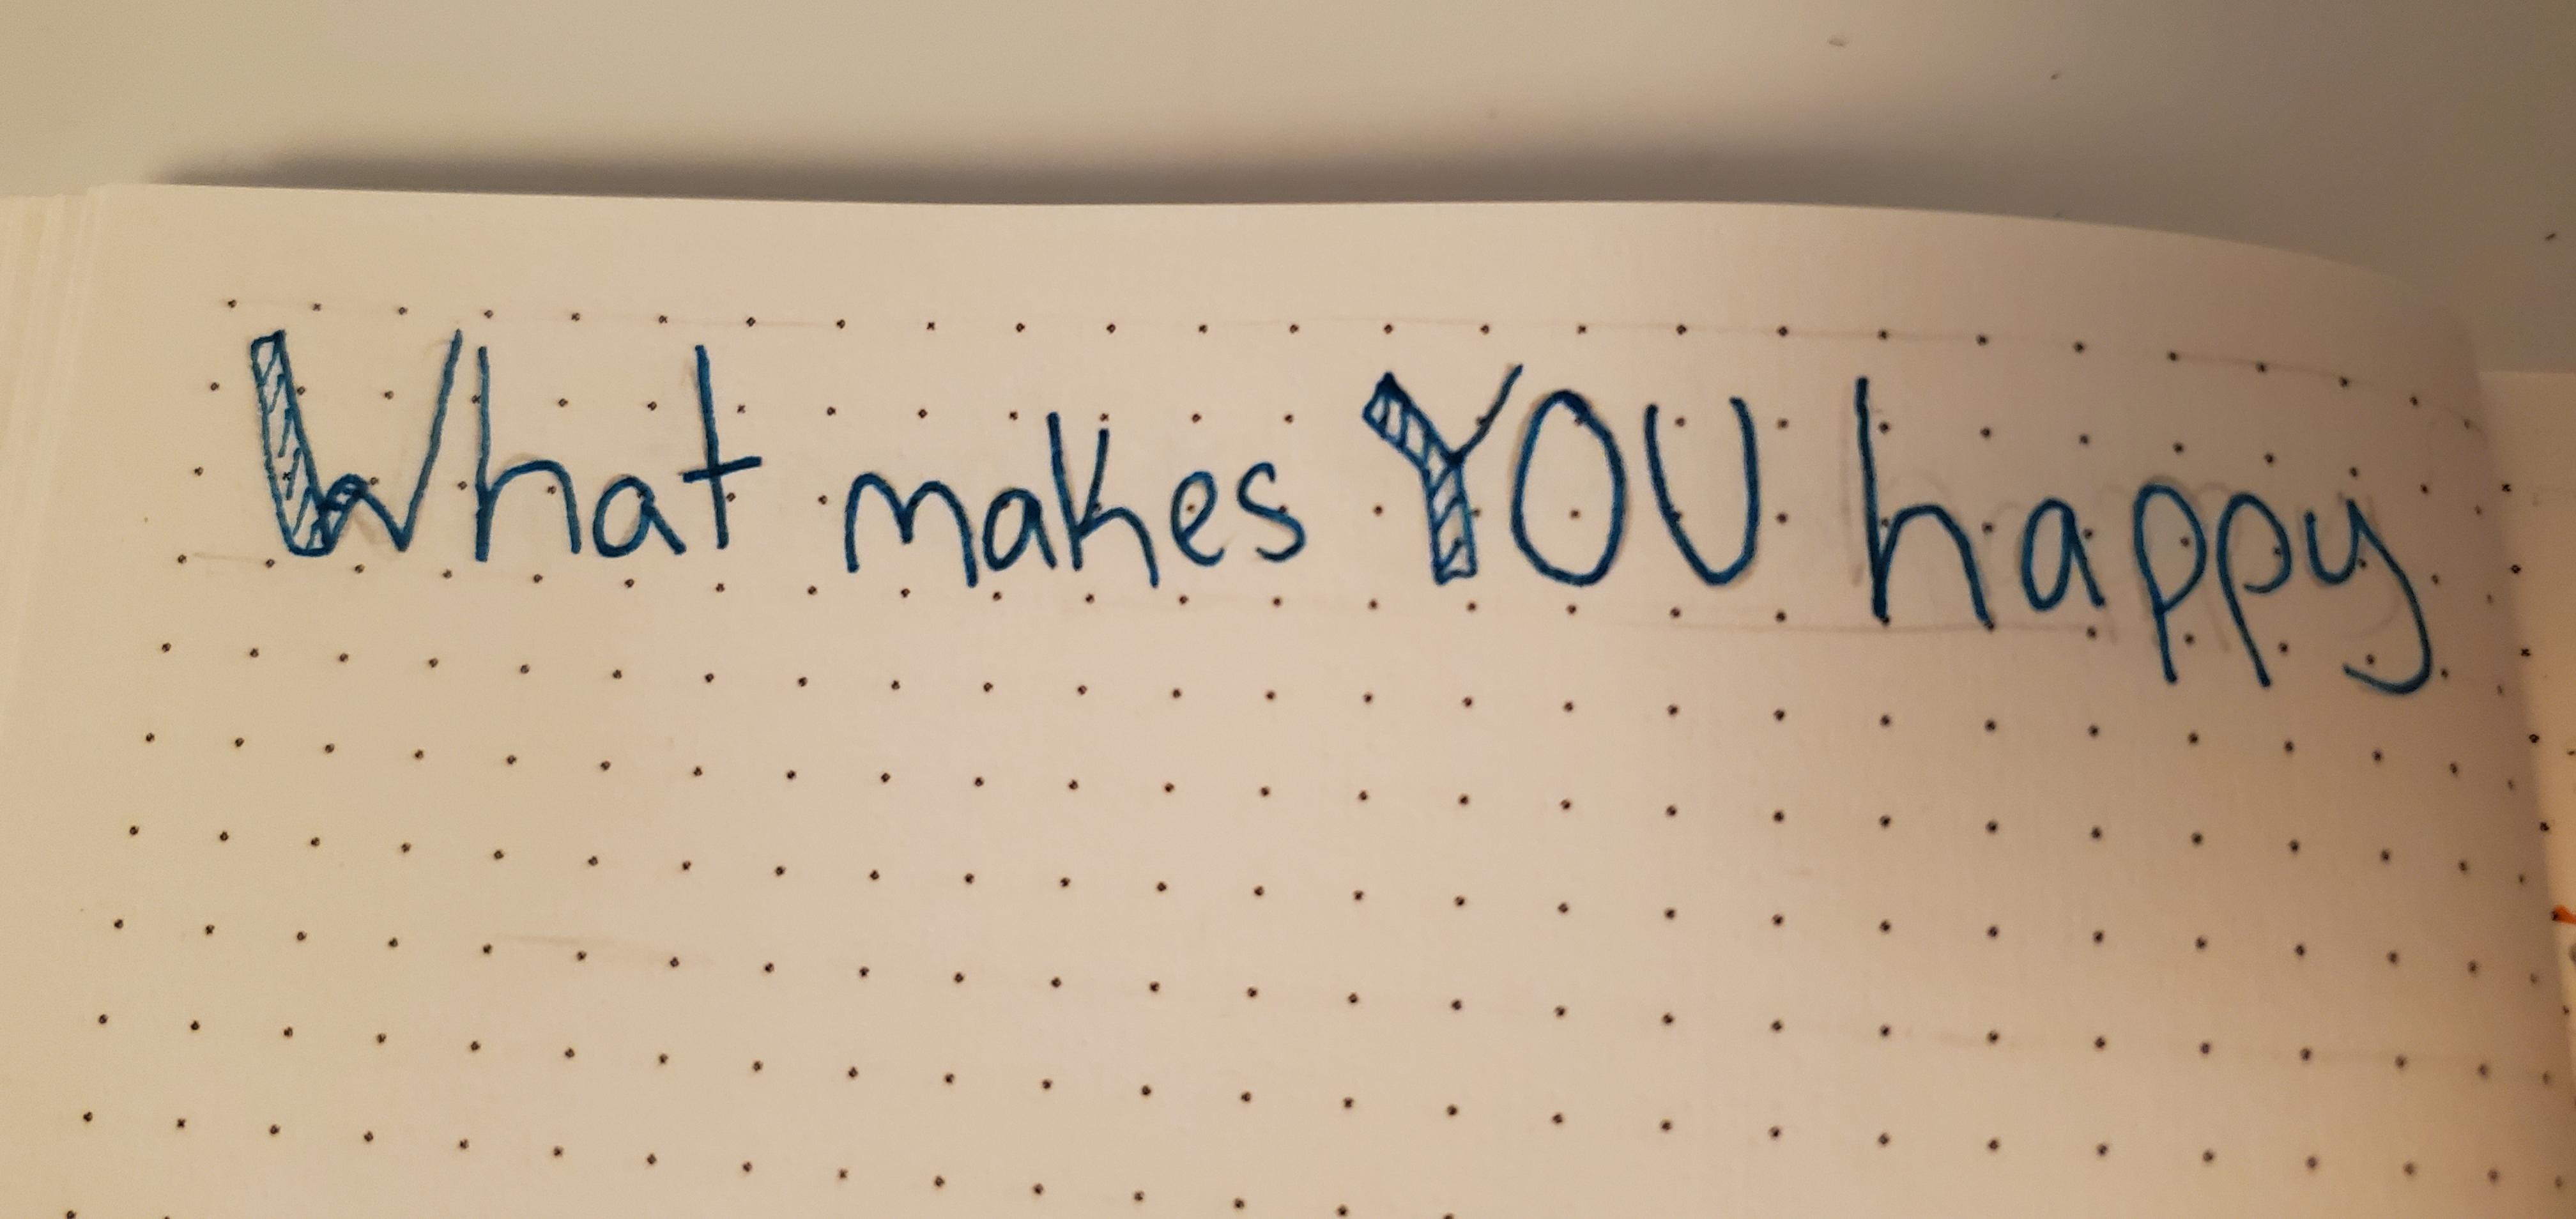 What makes YOU happy